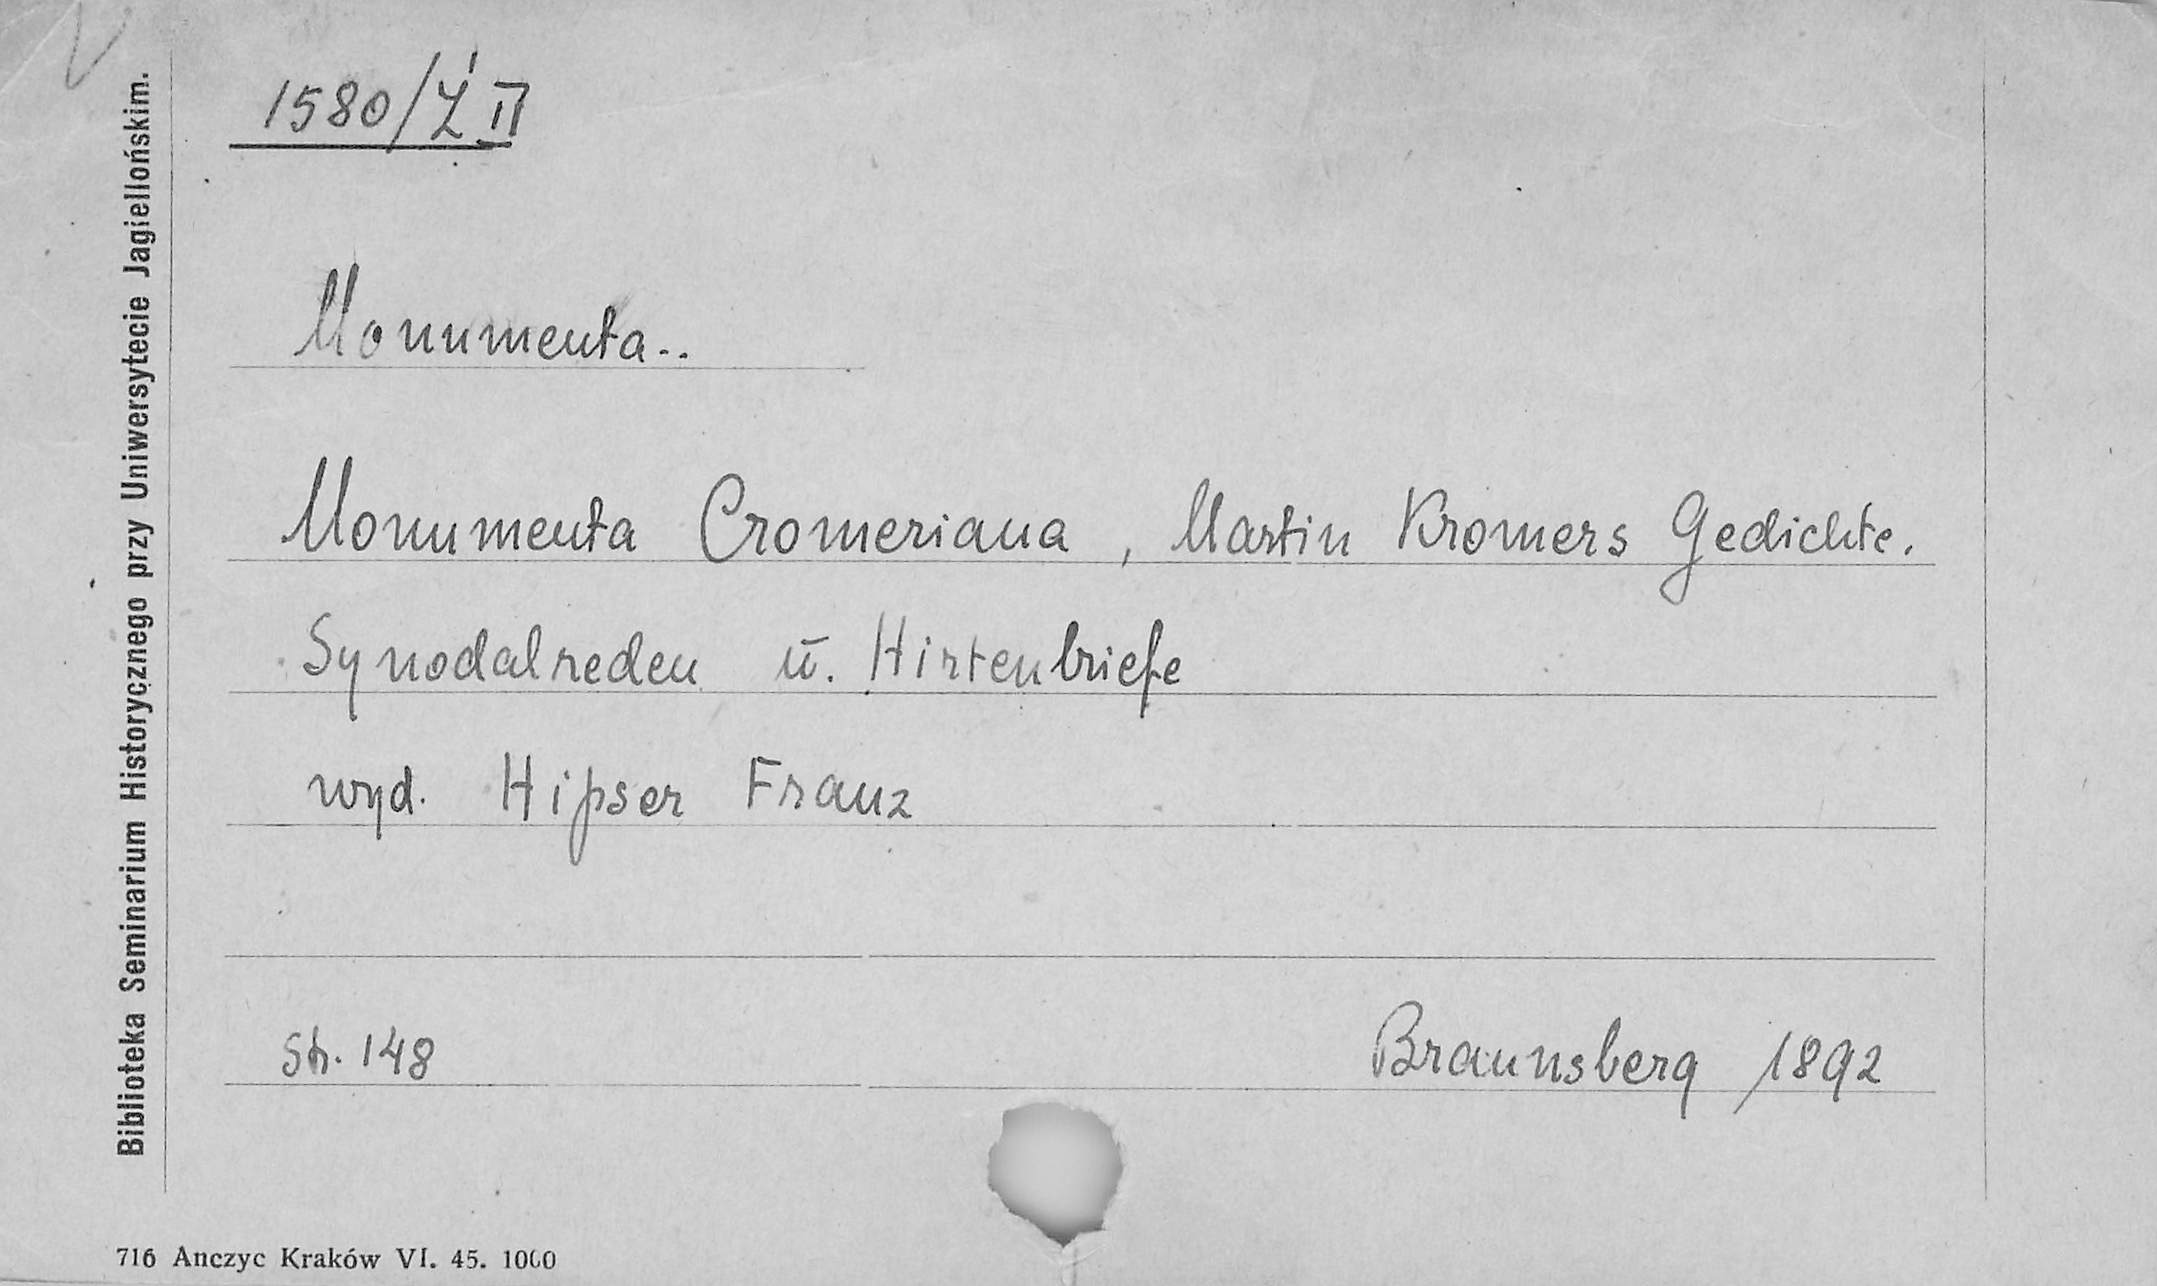 1580/Ź II
Monumenta..
Monumenta Cromeriana, Martin Kromers Gedichte.
Synodalreden ū. Hirtenbriefe
wyd. Hipser Franz
Str. 148
Braunsberg 1892
Biblioteka Seminarium Historycznego przy Uniwersytecie Jagiellońskim.
716 Anczyc Kraków VI. 45. 1000